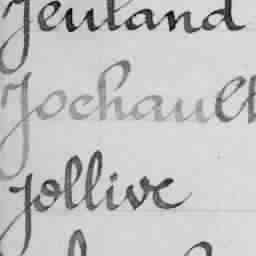 Jeuland
Jochault
Jollive